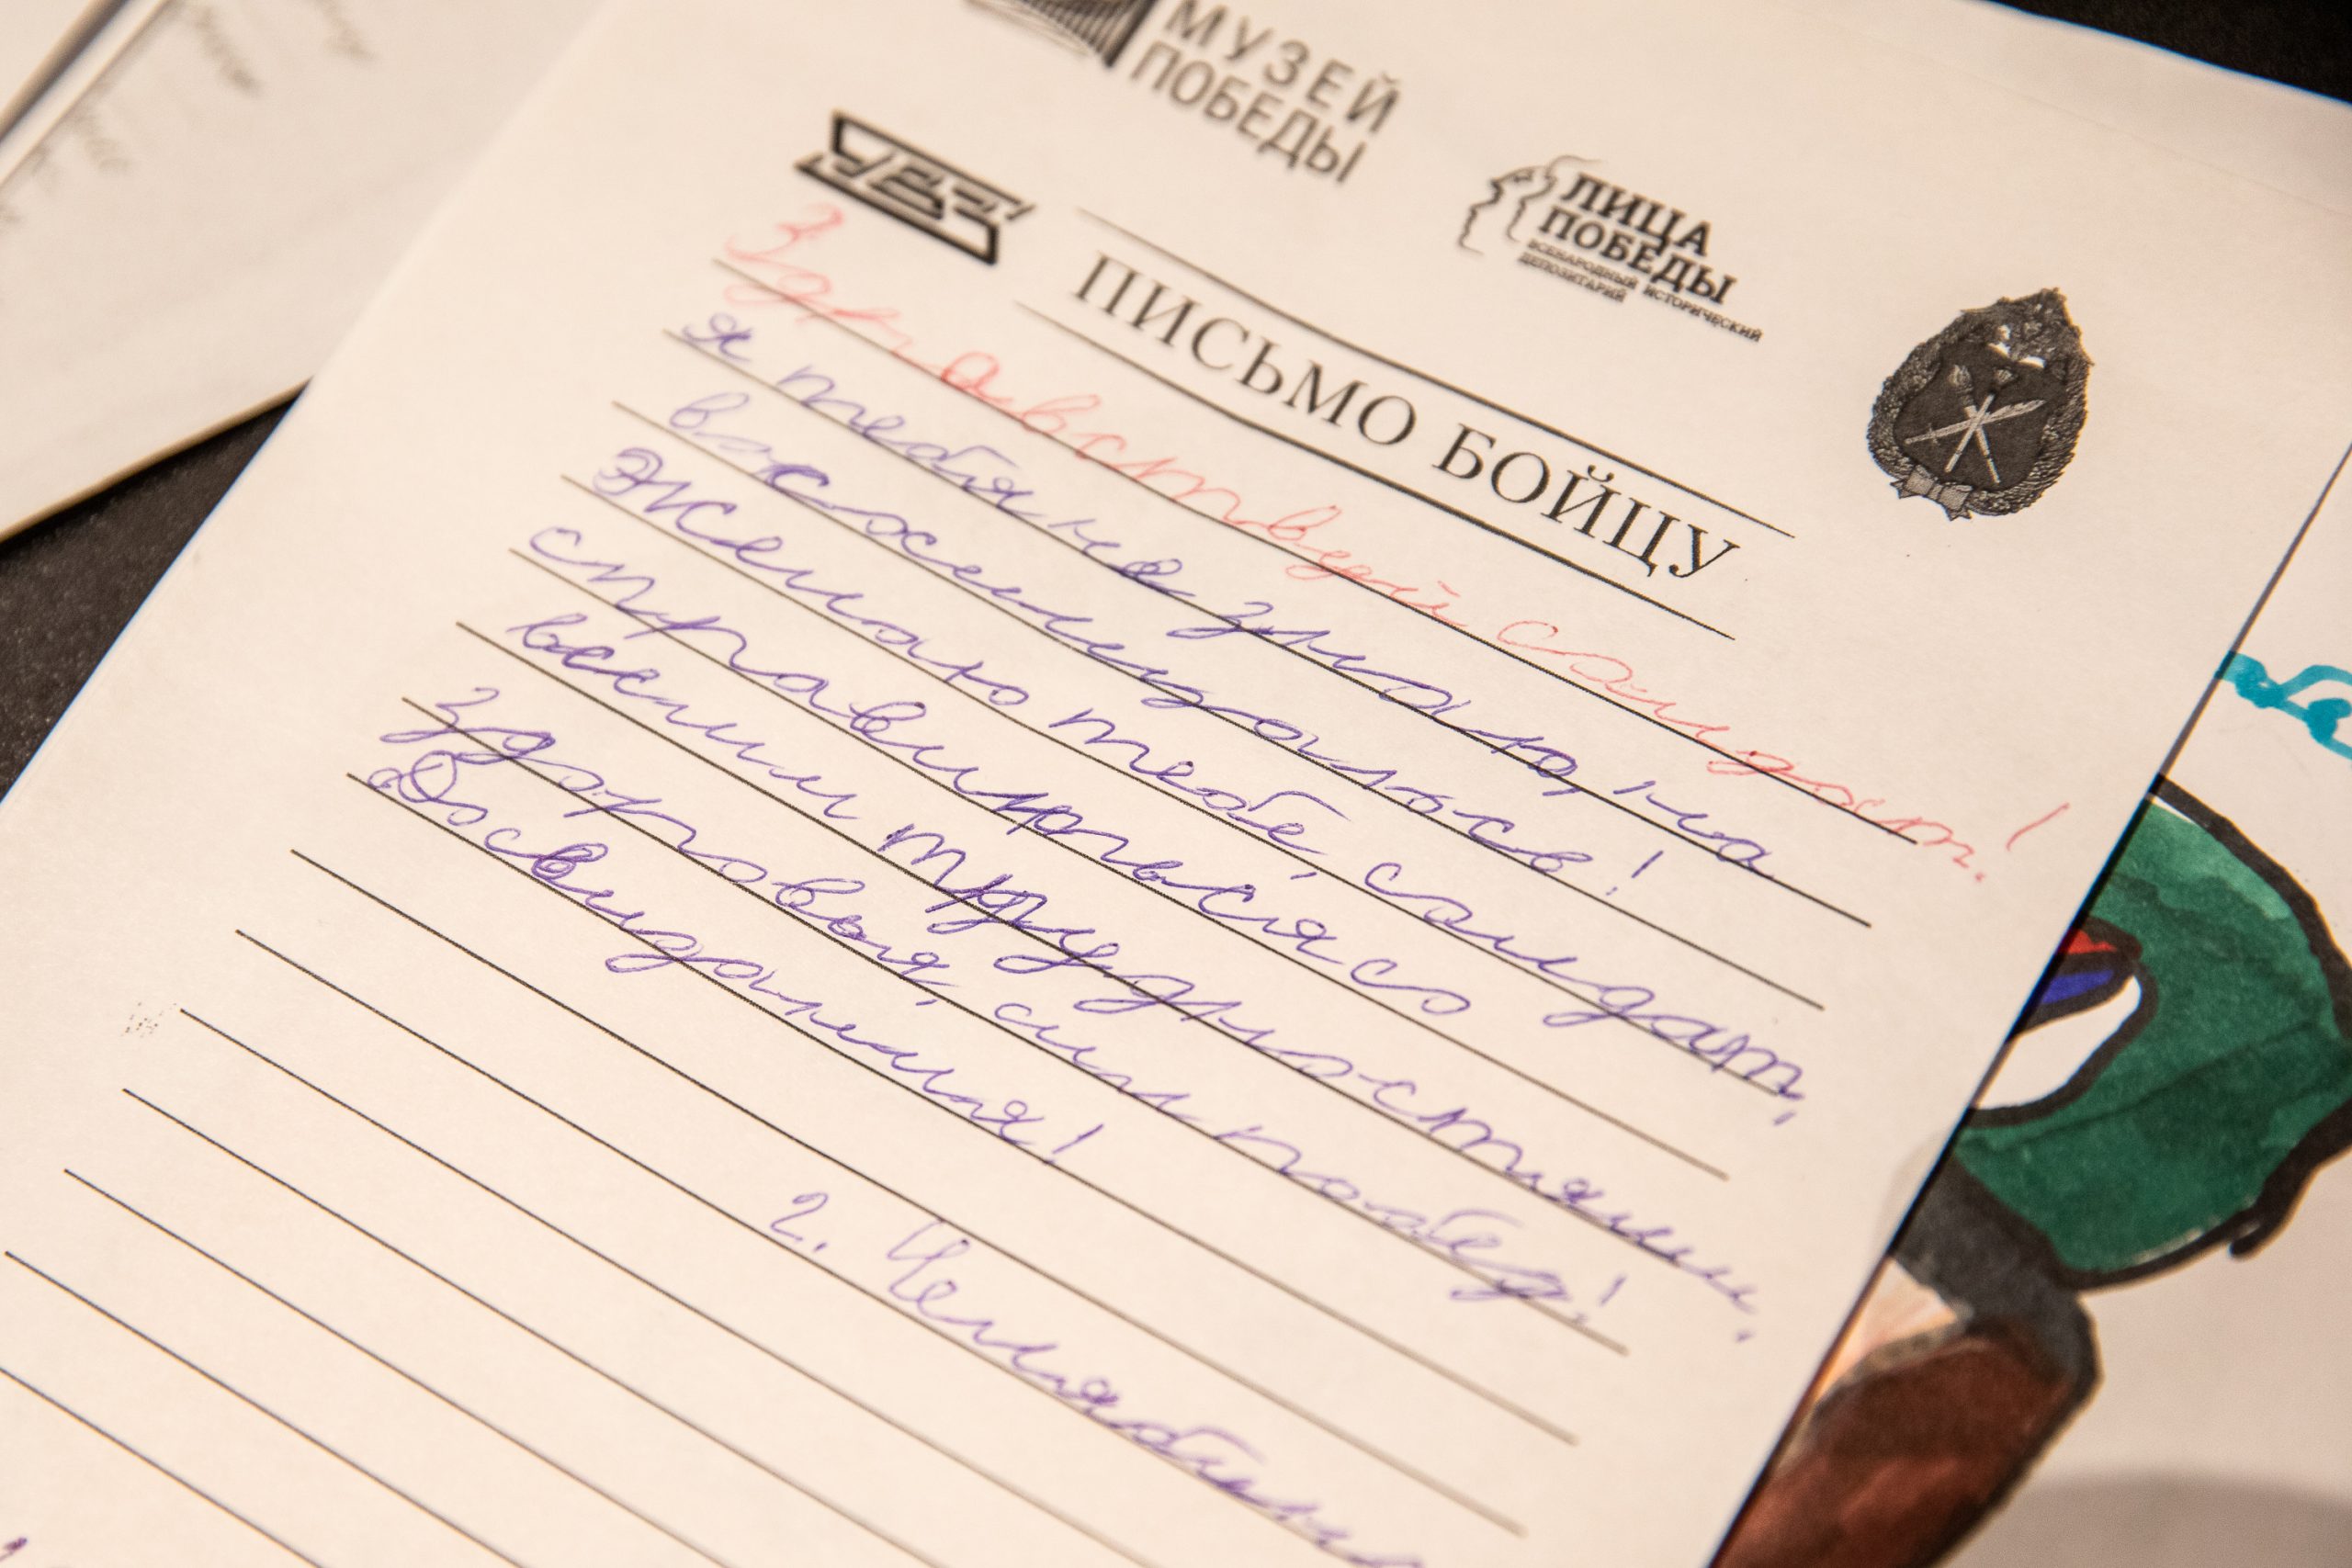 МУЗЕЙ
ПОБЕДЫ
ЛИЦА
ПОБЕДЫ
ВСЕНАРОДНЫЙ ИСТОРИЧЕСКИЙ
ДЕПОЗИТАРИЙ
ПИСЬМО БОЙЦУ
Здравствуй солдат!
я тебя не знаю, на
восхещаюсь!
Желаю тебе, солдат,
справиться со
всеми трудностями,
здоровья, сил побед!
Досвидания!
г. Челябинс